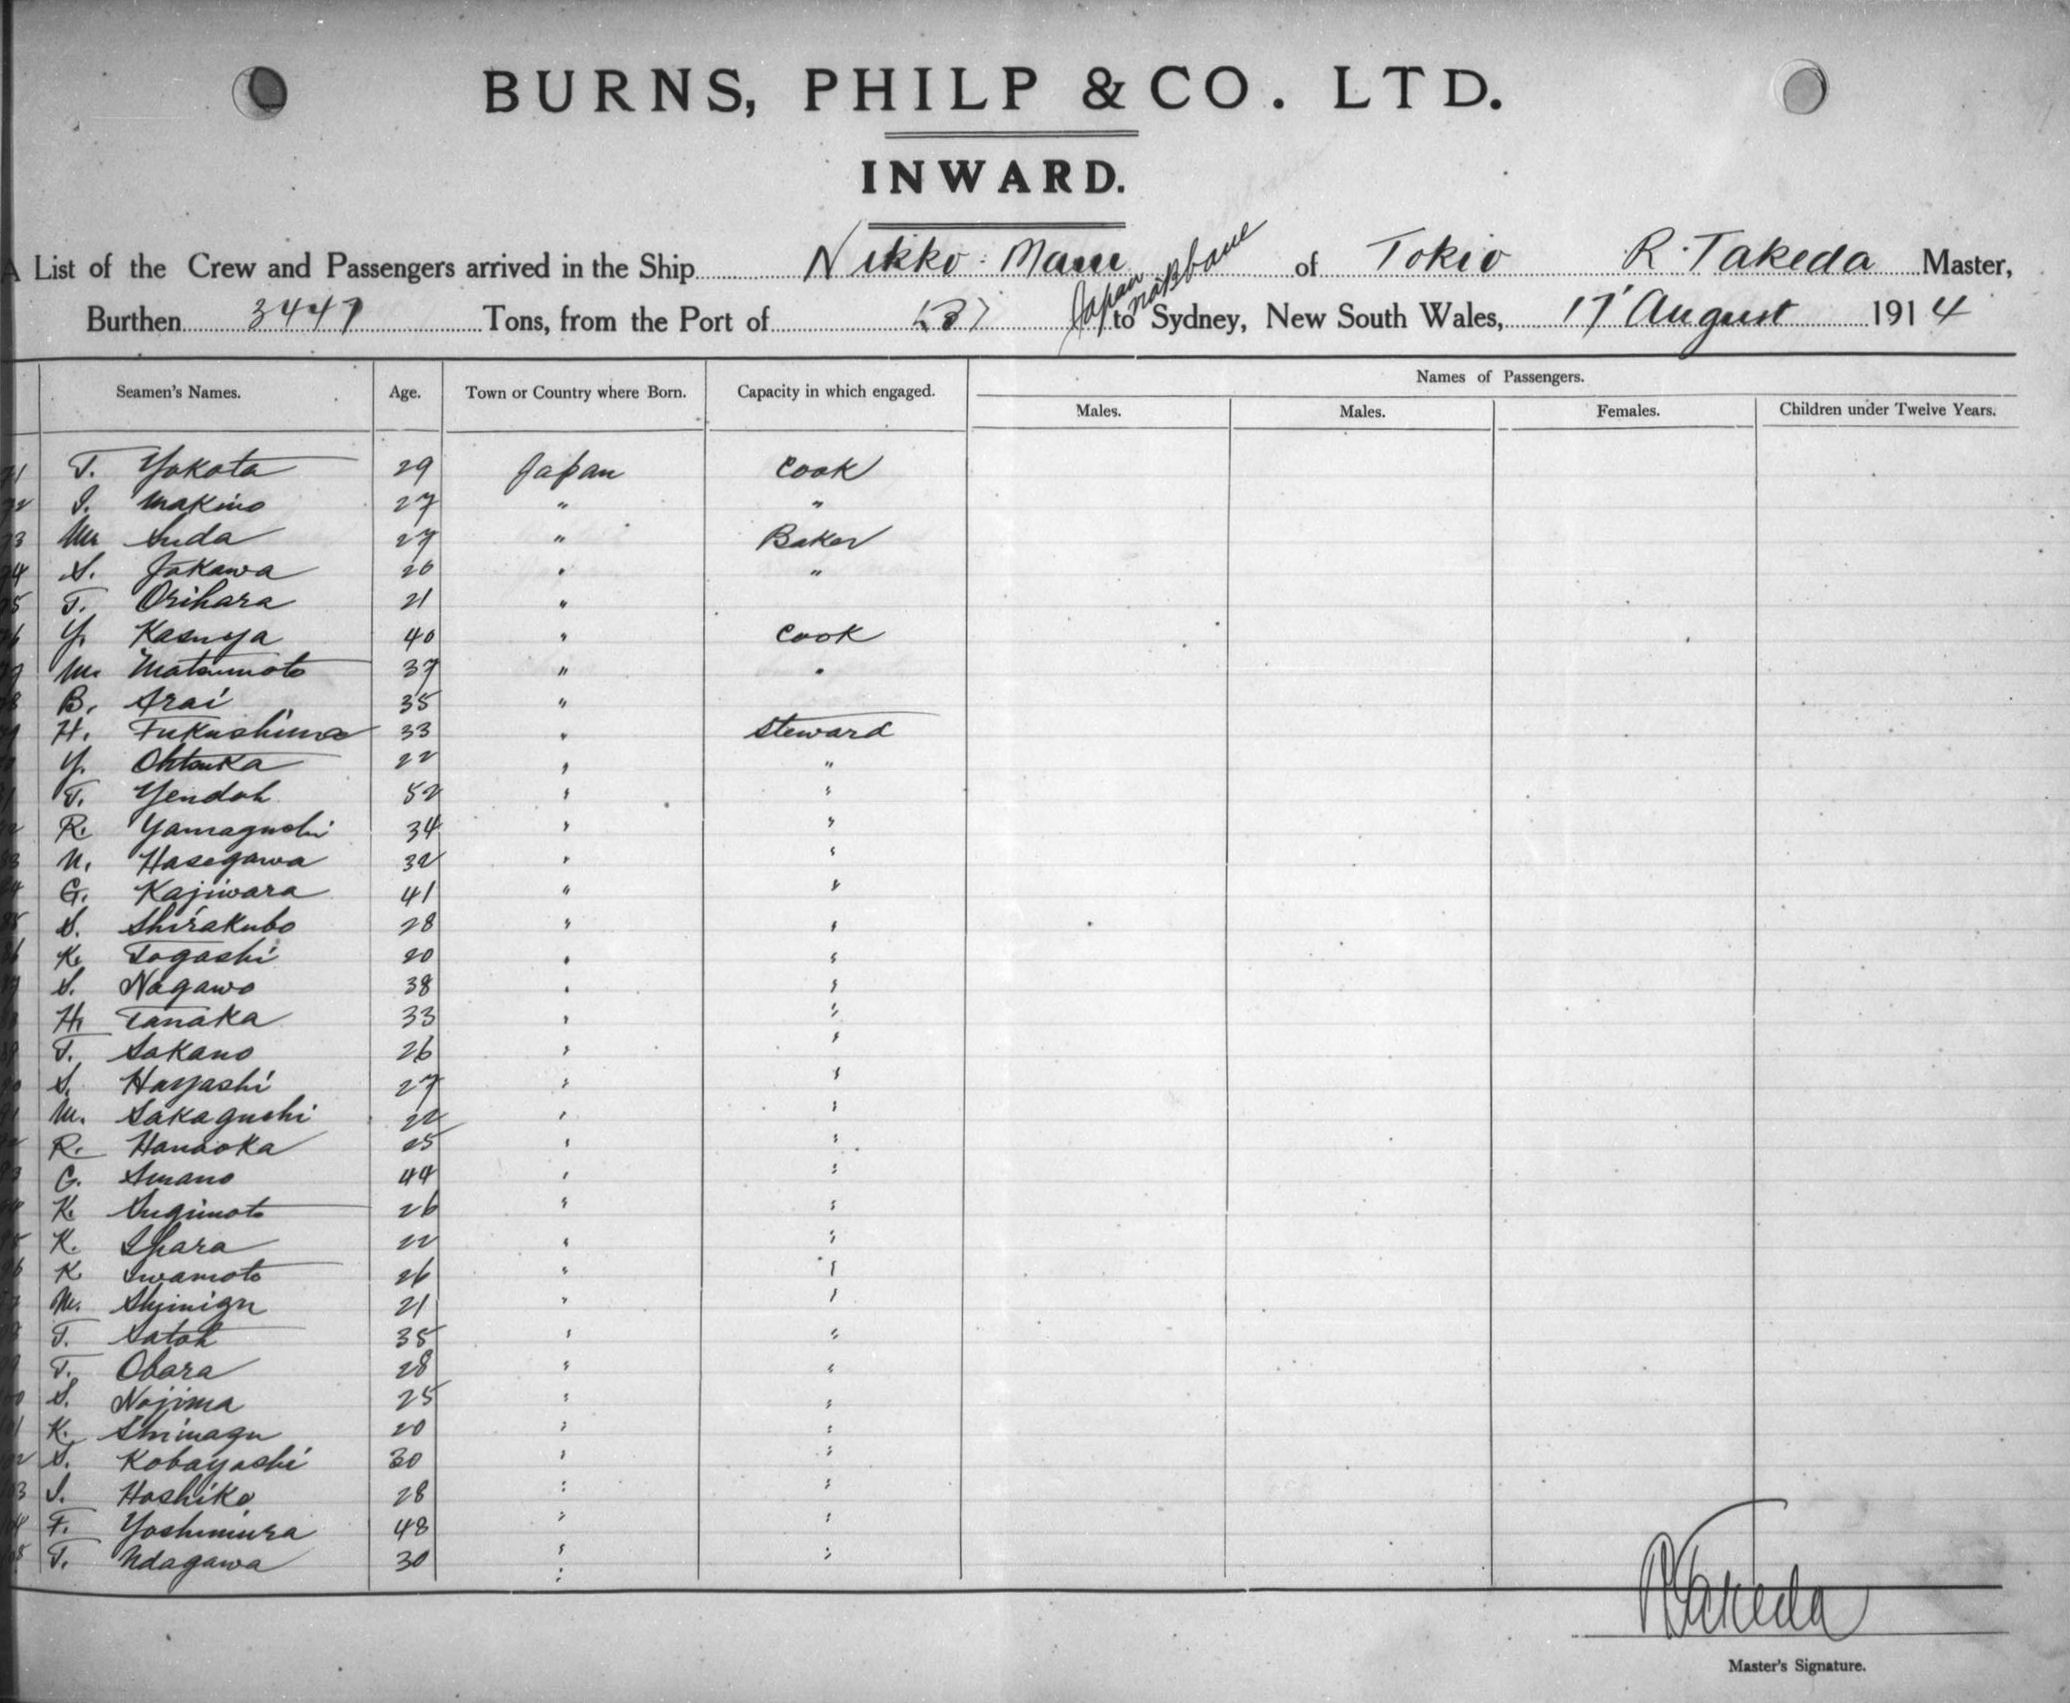 BURNS, PHILP & CO. LTD.
INWARD.
A List of the Crew and Passengers arrived in the Ship Nikko Maru of Tokio R. Takeda Master,
Burthen 3447 Tons, from the Port of Japan to Sydney, New South Wales, 17 August 1914
Names of Passengers.
Seamen's Names. Age. Town or Country where Born. Capacity in which engaged. Males. Males. Females. Children under Twelve Years.
71 T. Yokota 29 Japan Cook
72 I. Makino 27 " "
73 M. Suda 27 " Baker
74 S. 26 " "
75 T. Orihara 21 "
76 Y. Kasuya 40 " Cook
77 M. Matsumoto 37 " "
78 B. Arai 35 "
79 H. Fukushima 33 " Steward
80 Y. Ohtsuka 22 " "
81 T. Yendoh 52 " "
82 R. Yamaguchi 34 " "
83 N. Hasegawa 32 " "
84 G. Kajiwara 41 " "
85 S. Shirakubo 28 " "
86 K. Togashi 20 " "
87 S. Nagawo 38 " "
88 H. Tanaka 33 " "
89 T. Sakano 26 " "
90 S. Hayashi 27 " "
91 M. Sakaguchi 22 " "
92 R. Hanaoka 25 " "
93 G. 44 " "
94 K. Sugimoto 26 " "
95 K. 22 " "
96 K. Iwamoto 26 " "
97 M. 21 " "
98 T. Satoh 35 " "
99 T. Obara 28 " "
100 S. Nojima 25 " "
101 K. 20 " "
102 S. Kobayashi 30 " "
103 S. Hoshiko 28 " "
104 F. Yoshimura 48 " "
105 T. 30 " "
R Takeda
Master's Signature.